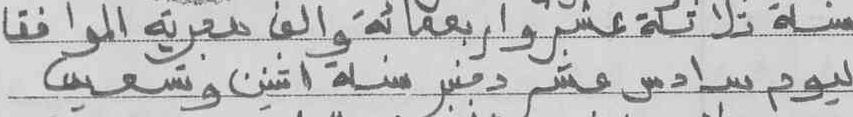 سنة ثلاثة عشر واربعمائة والف هجرية الموافقا
ليوم سادس عشر دجنبر سنة اثنين وتسعين